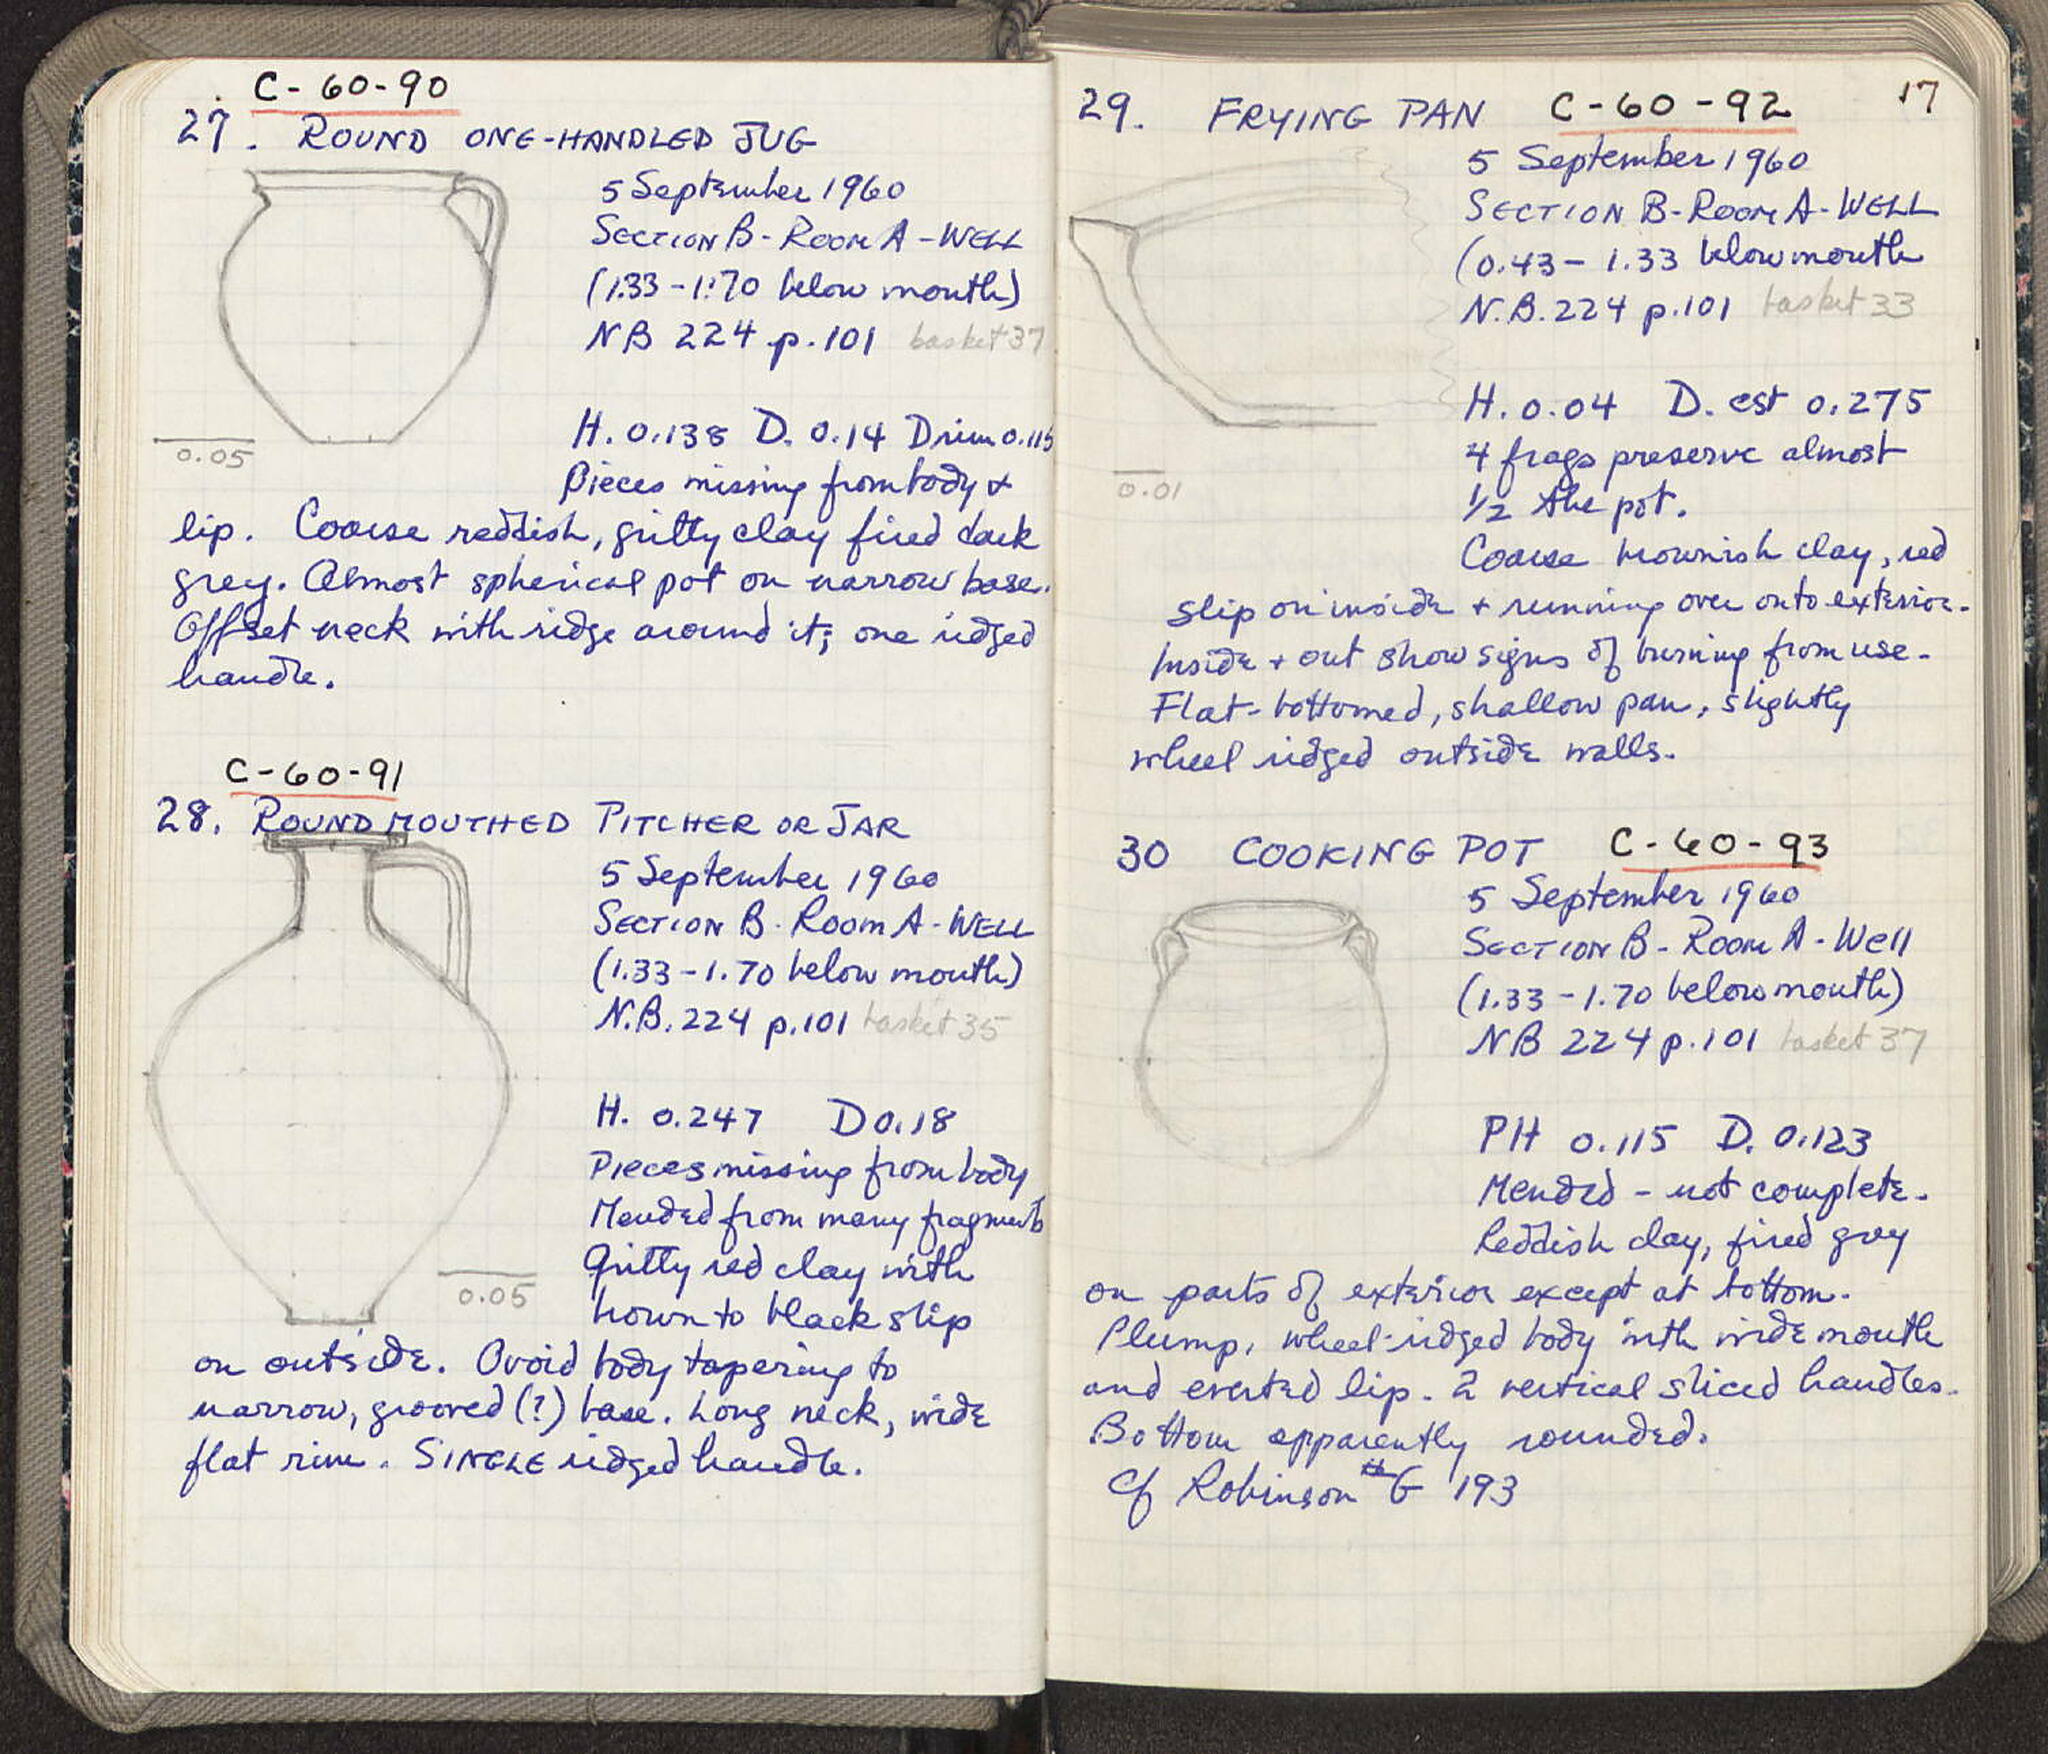 C-60-90
27. ROUND ONE-HANDLED JUG
5 September 1960
SECTION B - ROOM A - WELL
(1.33 - 1.70 below mouth)
NB 224 p. 101 basket 37
H. 0.138 D. 0.14 D rim 0.115
Pieces missing from body &
lip. Coarse reddish, gritty clay fired dark
grey. Almost spherical pot on narrow base.
Offset neck with ridge around it; one ridged
handle.
0.05
C-60-91
28. ROUND MOUTHED PITCHER OR JAR
5 September 1960
SECTION B - ROOM A - WELL
(1.33 - 1.70 below mouth)
N.B. 224 p. 101 basket 35
H. 0.247 D 0.18
Pieces missing from body
Mended from many fragments
Gritty red clay with
brown to black slip
0.05
on outside. Ovoid body tapering to
narrow, grooved (?) base. Long neck, wide
flat rim. SINGLE ridged handle.
17
29. FRYING PAN C-60-92
5 September 1960
SECTION B - ROOM A - WELL
(0.43 - 1.33 below mouth
N.B. 224 p. 101 basket 33
H. 0.04 D. est 0.275
4 frags preserve almost
1/2 the pot.
0.01
Coarse brownish clay, red
slip on inside + running over onto exterior.
Inside + out show signs of burning from use.
Flat-bottomed, shallow pan, slightly
wheel ridged outside walls.
30 COOKING POT C-60-93
5 September 1960
SECTION B - ROOM A - Well
(1.33 - 1.70 below mouth)
NB 224 p. 101 basket 37
PH 0.115 D. 0.123
Mended - not complete.
Reddish clay, fired grey
on parts of exterior except at bottom.
Plump, wheel-ridged body with wide mouth
and everted lip. 2 vertical sliced handles.
Bottom apparently rounded.
Cf Robinson G 193